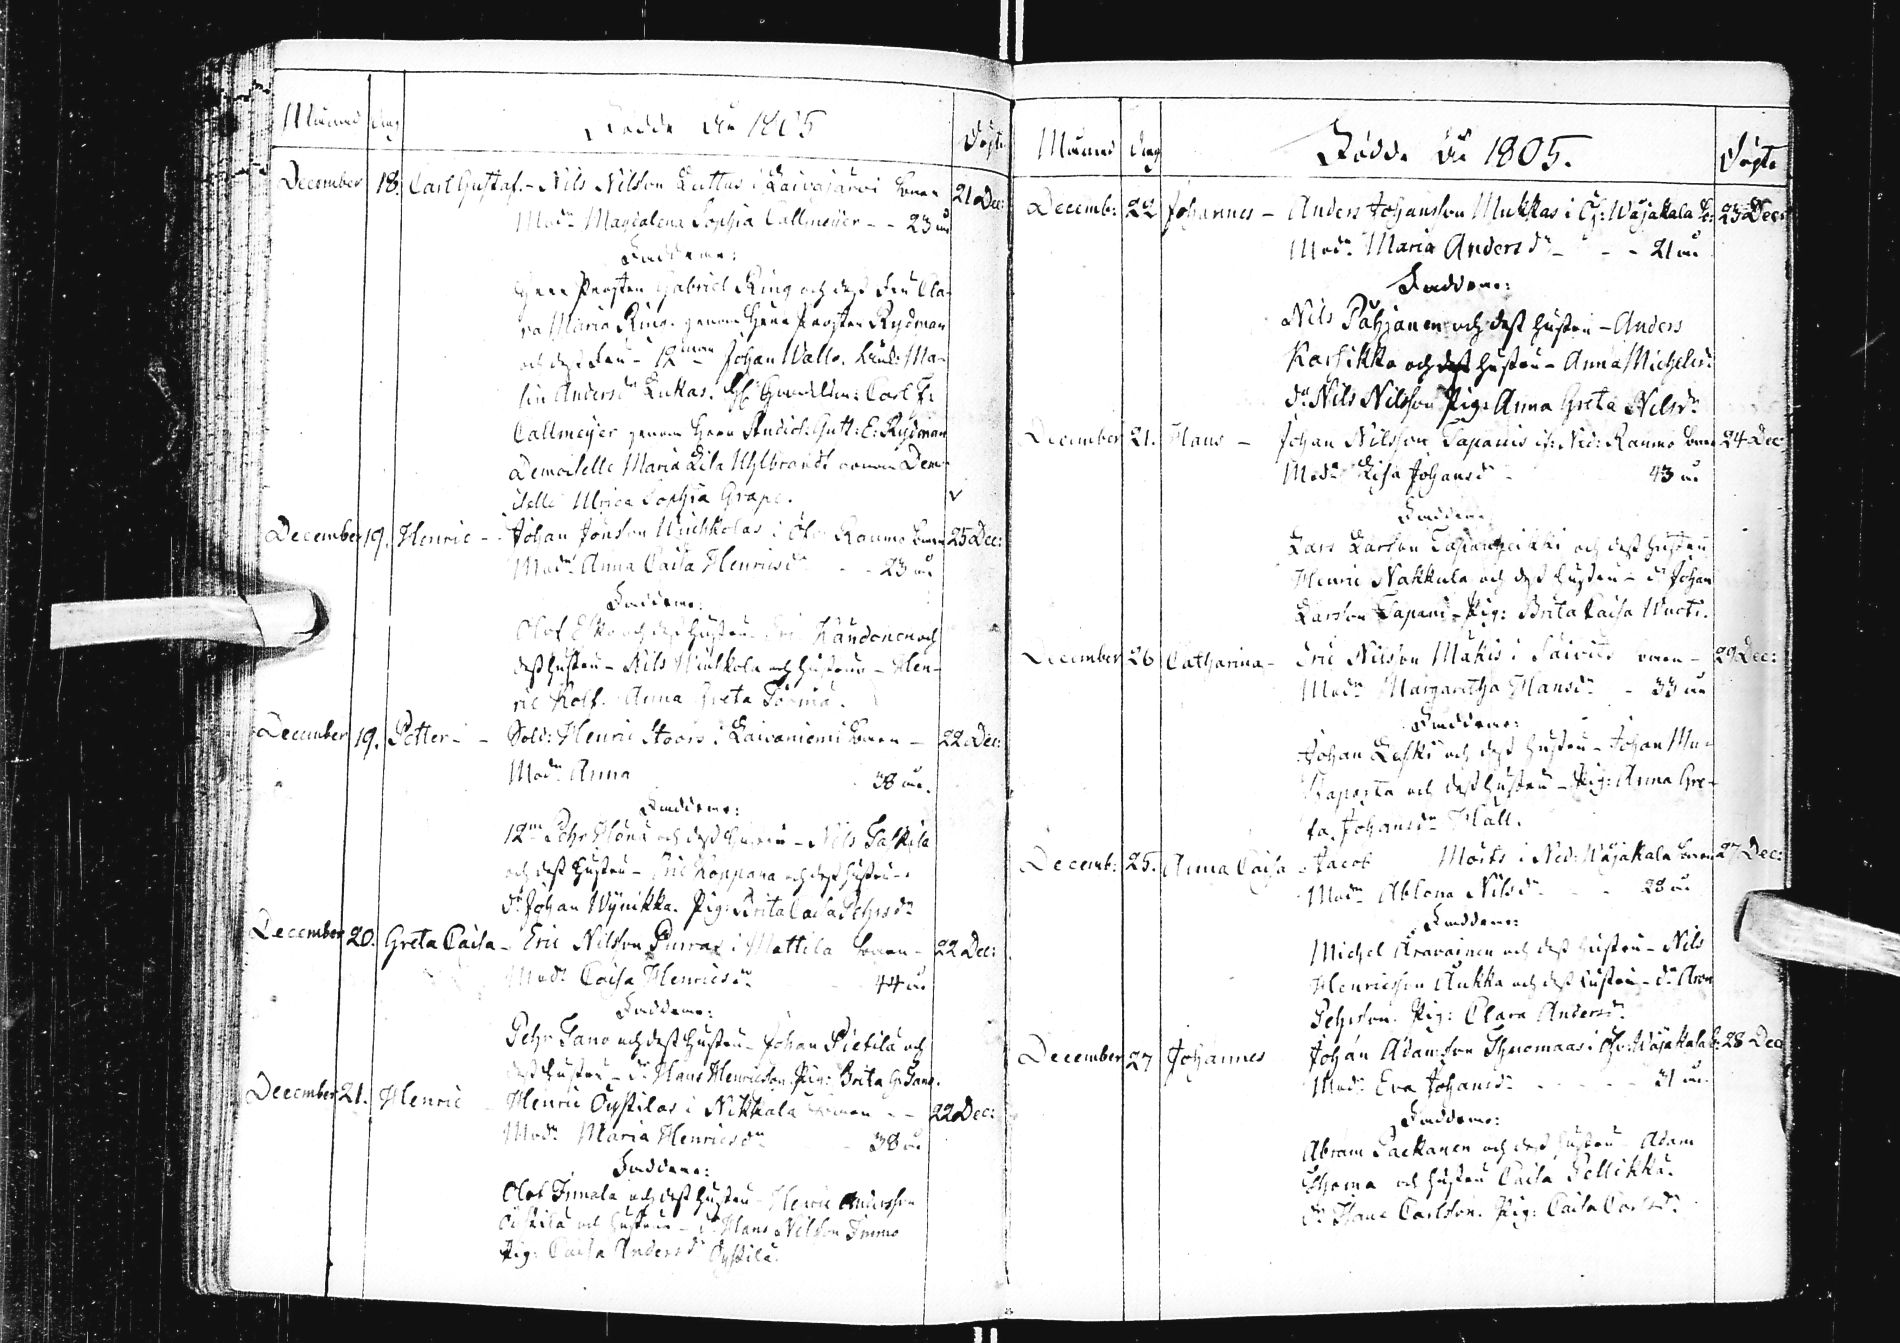 Månad dag Födde År 1805 Döpte
December 18. Carl Gustaf. - Nils Nilsson Luttus i Laivajärvi bonen 21 Dec:
Modr Magdalena Sophia Callmeijer - - 23 år
Faddrar:
Herr Prosten Gabriel Ring och dess Fru Cla-
ra Maria Ring. genom Herr Prosten Rydman
och dess Fru - 12man Johan Wallo. Maria Anders dr
Callmeijer genom Herr Studios: E: Rydman
Demoiselle Maria Lisa Uhlbrandt genom Dem-
iselle Ulrica Sophia Grape.
December 19. Henric - Johan Jönsson i Öfv: Raumo bonen 25 Dec:
Modr Anna Caisa Henricsdr - - 23 år
Faddrar:
Olof och dess hustru och
dess hustru - Nils och hustrun - Hen-
ric Anna Greta
December 19. Petter - Sold: Henric Stoors i Laivaniemi bonen - 22 Dec:
Modr Anna 38 år.
Faddrar:
12m Pehr och dess hustru - Nils
och dess hustru - Eric Koppana och dess hustru -
dr Johan Wynikka. Pig: Brita Caisa Pehrsdr
December 20. Greta Caisa - Eric Nilsson Purras i Mattila bonen - 22 Dec:
Modr Caisa Henricsdr 44 år
Faddrar:
Pehr Tano och dess hustru - Johan Pietilä och
dess hustru - dr Hans Henricson. Pig: Brita Gr: Tano.
December 21. Henric Henric Öystilas i Nikkala bonen - - 22 Dec:
Modr Maria Henricsdr 38 år
Faddrar:
Olof Innala och dess hustru - Henric Andersson
Öystilä och hustrun - dr Hans Nilsson Immo
Pig: Caisa Andersdr Öystilä.
Månad dag Födde År 1805. Döpte
Decemb: 22 Johannes - Anders Johansson Mukkas i Ö: Wojakala b: 23 Dec:
Modr Maria Anders dr - - - 21 år
Faddrar:
Nils Pahjanen och dess hustru - Anders
Karsikko och dess hustru - Anna Michelsdr
dr Nils Nilsson Pig: Anna Greta Nilsdr
December 21. Hans - Johan Nilsson Tapanis i Ned: Raumo bonen 24 Dec:
Modr Lisa Johansdr - 43 år
Faddrar:
Lars Larsson och dess hustru
Henric Nakkula och dess hustru - dr Johan
Larsson Tapani - Pig: Brita Caisa
December 26 Catharina - Eric Nilsson Mäkis i Säivits bonen - 29 Dec:
Modr Margaretha Hansdr - 33 år
Faddrar:
Johan Laski och dess hustru - Johan
och dess hustru - Pig: Anna Gre-
ta Johansdr Hall.
Decemb: 25. Anna Caisa Jacob Morts i Ned: Wojakala bonen 27 Dec:
Modr Ablona Nilsdr - - 28 år
Faddrar:
Michel Aravainen och dess hustru - Nils
Henricsson Aukka och dess hustru - dr Aron
Pehrsson. Pig: Clara Andersdr
December 27 Johannes Johan Adamsson Thuomaas i Öfv: Wojakala b: 28 Dec
Modr Eva Johansdr - - - - 31 år
Faddrar:
Abram Packanen och dess hustru Adam
Thoma och hustru Caisa Pellikka.
dr Isaac Carlsson. Pig: Caisa Carlsdr